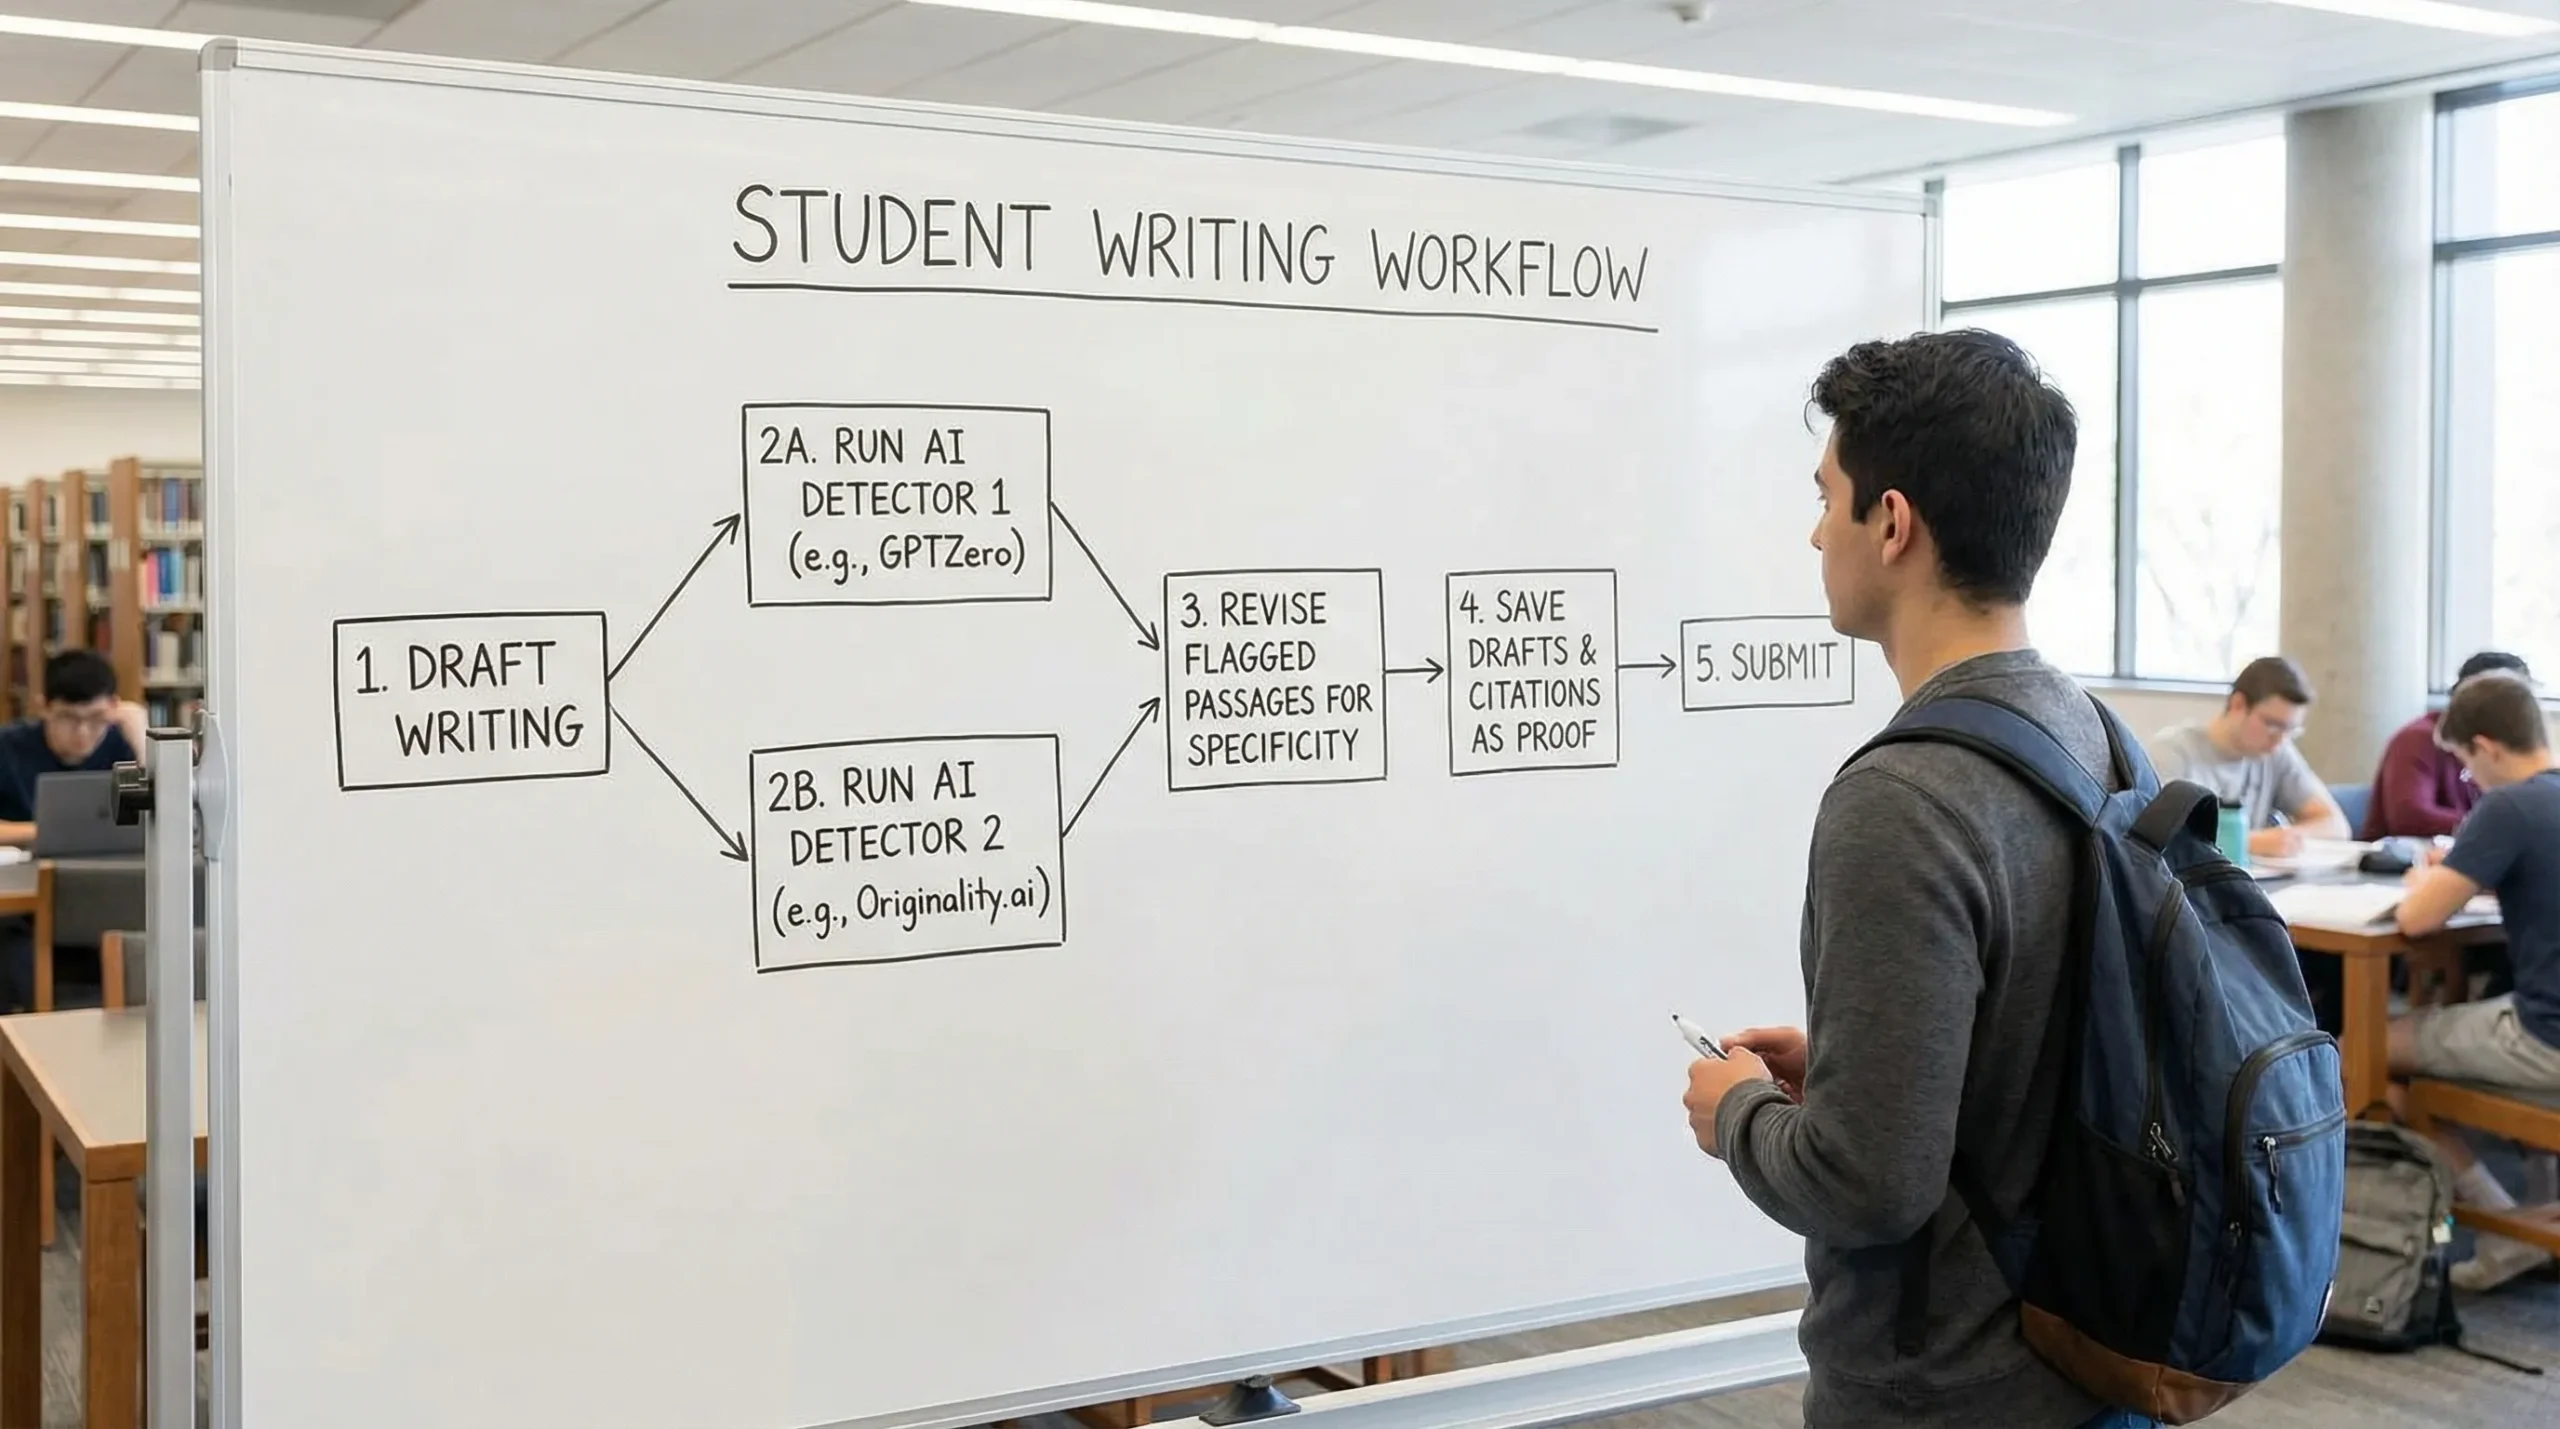 STUDENT WRITING WORKFLOW
1. DRAFT
WRITING
2A. RUN AI
DETECTOR 1
(e.g., GPTZero)
2B. RUN AI
DETECTOR 2
(e.g., Originality.ai)
3. REVISE
FLAGGED
PASSAGES FOR
SPECIFICITY
4. SAVE
DRAFTS &
CITATIONS
AS PROOF
5. SUBMIT